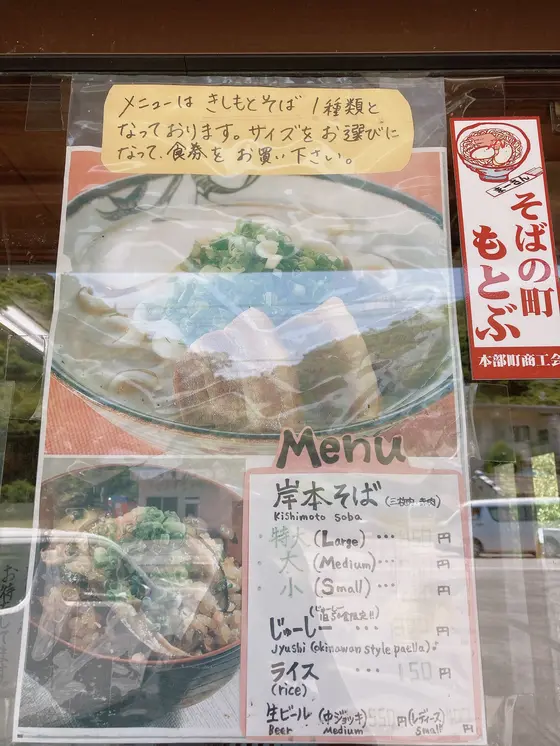 メニューは きしもとそば 1種類と
なっております。サイズをお選びに
なって、食券をお買い下さい。
そばの町
もとぶ
本部町商工会
Menu
岸本そば (三枚肉・赤肉)
Kishimoto Soba
特大 (Large) ・・・ 円
大 (Medium) ・・・ 円
小 (Small) ・・・ 円
じゅーしー ・・・ 円
Jyushi (okinawan style paella)
ライス ・・・ 150 円
(rice)
生ビール (中ジョッキ) 550 円 (レディース) 円
Beer Medium Small
お待